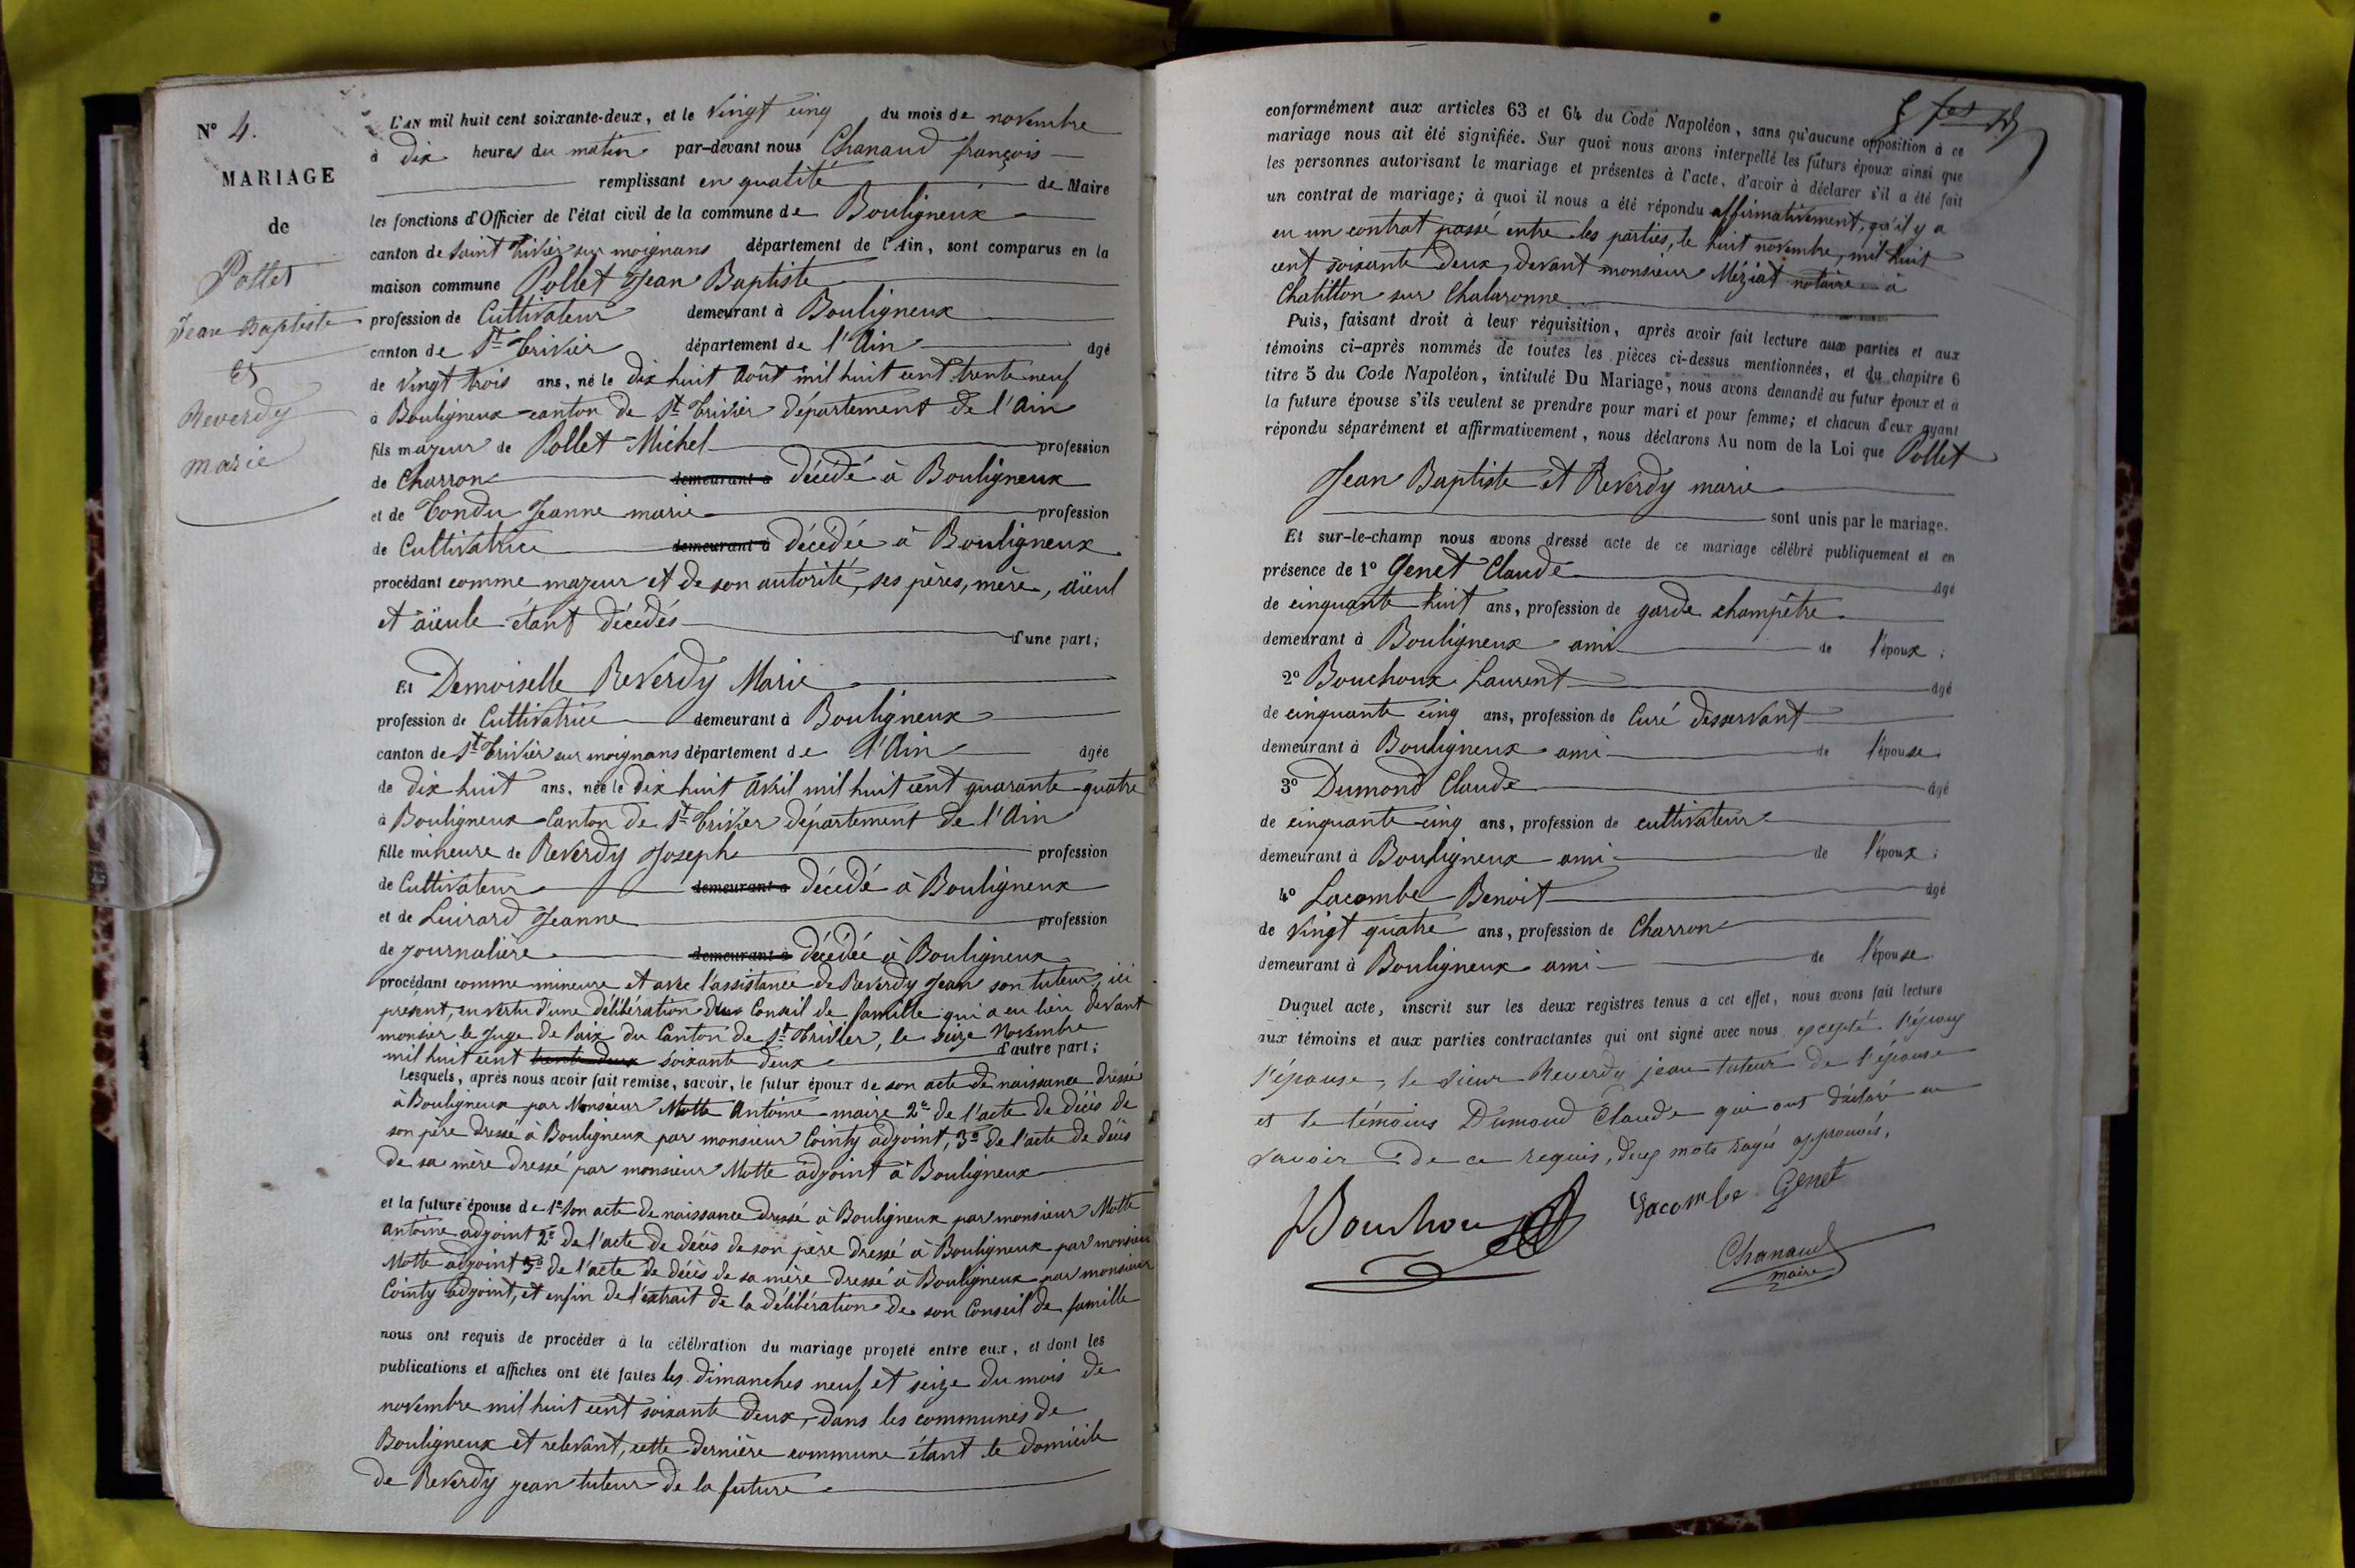 N° 4.
MARIAGE
de
Pollet
Jean Baptiste
Et
Reverdy
marie
L'AN mil huit cent soixante-deux, et le vingt cinq du mois de novembre
à dix heures du matin par-devant nous Chanaud françois
remplissant en qualité de Maire
les fonctions d'Officier de l'état civil de la commune de Bouligneux
canton de saint Trivier sur moignans département de l'Ain, sont comparus en la
maison commune Pollet Jean Baptiste
profession de Cultivateur demeurant à Bouligneux
canton de St Trivier département de l'Ain âgé
de vingt trois ans, né le dix huit août mil huit cent trente neuf
à Bouligneux canton de St Trivier département de l'Ain
fils majeur de Pollet Michel profession
de Charron demeurant à décédé à Bouligneux
et de Tondu Jeanne marie profession
de Cultivatrice demeurant à décédée à Bouligneux
procédant comme majeur et de son autorité, ses pères, mère, aïeul
et aïeule étant décédés d'une part;
Et Demoiselle Reverdy Marie
profession de Cultivatrice demeurant à Bouligneux
canton de St Trivier sur moignans département de l'Ain âgée
de dix huit ans, née le dix huit avril mil huit cent quarante quatre
à Bouligneux Canton de St Trivier département de l'Ain
fille mineure de Reverdy Joseph profession
de Cultivateur demeurant à décédé à Bouligneux
et de Luirard Jeanne profession
de journalière demeurant à décédée à Bouligneux
procédant comme mineure et avec l'assistance de Reverdy Jean son tuteur, ici
présent, en vertu d'une délibération du Conseil de famille qui a eu lieu devant
monsier le Juge de Paix du Canton de St Trivier, le seize Novembre
mil huit cent trente deux soixante deux d'autre part;
Lesquels, après nous avoir fait remise, savoir, le futur époux de son acte de naissance dressé
à Bouligneux par Monsieur Motte Antoine maire 2° de l'acte de décès de
son père dressé à Bouligneux par monsieur Cointy adjoint, 3° de l'acte de décès
de sa mère dressé par monsieur Motte adjoint à Bouligneux
et la future épouse de 1° son acte de naissance dressé à Bouligneux par monsieur Motte
antoine adjoint 2° de l'acte de décès de son père dressé à Bouligneux par monsieur
Motte adjoint 3° de l'acte de décès de sa mère dressé à Bouligneux par monsieur
Cointy adjoint, et enfin de l'extrait de la délibération de son Conseil de famille
nous ont requis de procéder à la célébration du mariage projeté entre eux, et dont les
publications et affiches ont été faites les dimanches neuf et seize du mois de
novembre mil huit cent soixante deux, dans les communes de
Bouligneux et relevant, cette dernière commune étant le domicile
de Reverdy jean tuteur de la future
conformément aux articles 63 et 64 du Code Napoléon, sans qu'aucune opposition à ce
mariage nous ait été signifiée. Sur quoi nous avons interpellé les futurs époux ainsi que
les personnes autorisant le mariage et présentes à l'acte, d'avoir à déclarer s'il a été fait
un contrat de mariage; à quoi il nous a été répondu affirmativement, qu'il y a
eu un contrat passé entre les parties, le huit novembre, mil huit
cent soixante deux, devant monsieur Méziat notaire à
Chatillon sur Chalaronne
Puis, faisant droit à leur réquisition, après avoir fait lecture aux parties et aux
témoins ci-après nommés de toutes les pièces ci-dessus mentionnées, et du chapitre 6
titre 5 du Code Napoléon, intitulé Du Mariage, nous avons demandé au futur époux et à
la future épouse s'ils veulent se prendre pour mari et pour femme; et chacun d'eux ayant
répondu séparément et affirmativement, nous déclarons Au nom de la Loi que Pollet
Jean Baptiste et Reverdy marie
sont unis par le mariage.
Et sur-le-champ nous avons dressé acte de ce mariage célébré publiquement et en
présence de 1° Genet Claude âgé
de cinquante huit ans, profession de garde champêtre
demeurant à Bouligneux ami de l'époux;
2° Bouchoux Laurent âgé
de cinquante cinq ans, profession de Curé desservant
demeurant à Bouligneux ami de l'épouse
3° Dumond Claude âgé
de cinquante cinq ans, profession de cultivateur
demeurant à Bouligneux ami de l'époux;
4° Lacombe Benoit âgé
de vingt quatre ans, profession de Charron
demeurant à Bouligneux ami de l'épouse.
Duquel acte, inscrit sur les deux registres tenus à cet effet, nous avons fait lecture
aux témoins et aux parties contractantes qui ont signé avec nous excepté l'époux
l'épouse, le sieur Reverdy jean tuteur de l'épouse
et le témoins Dumond Claude qui ont déclaré ne
savoir de ce requis, deux mots rayés approuvés.
Bouchoux Lacombe Genet
Chanaud
maire